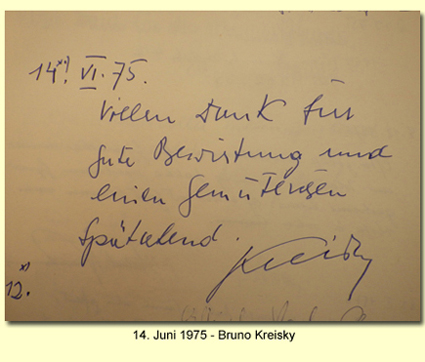 14.*) VI. 75.
Vielen Dank für
gute Bewirtung und
einen gemütlichen
Spätabend.
Kreisky
*)
12.
14. Juni 1975 - Bruno Kreisky